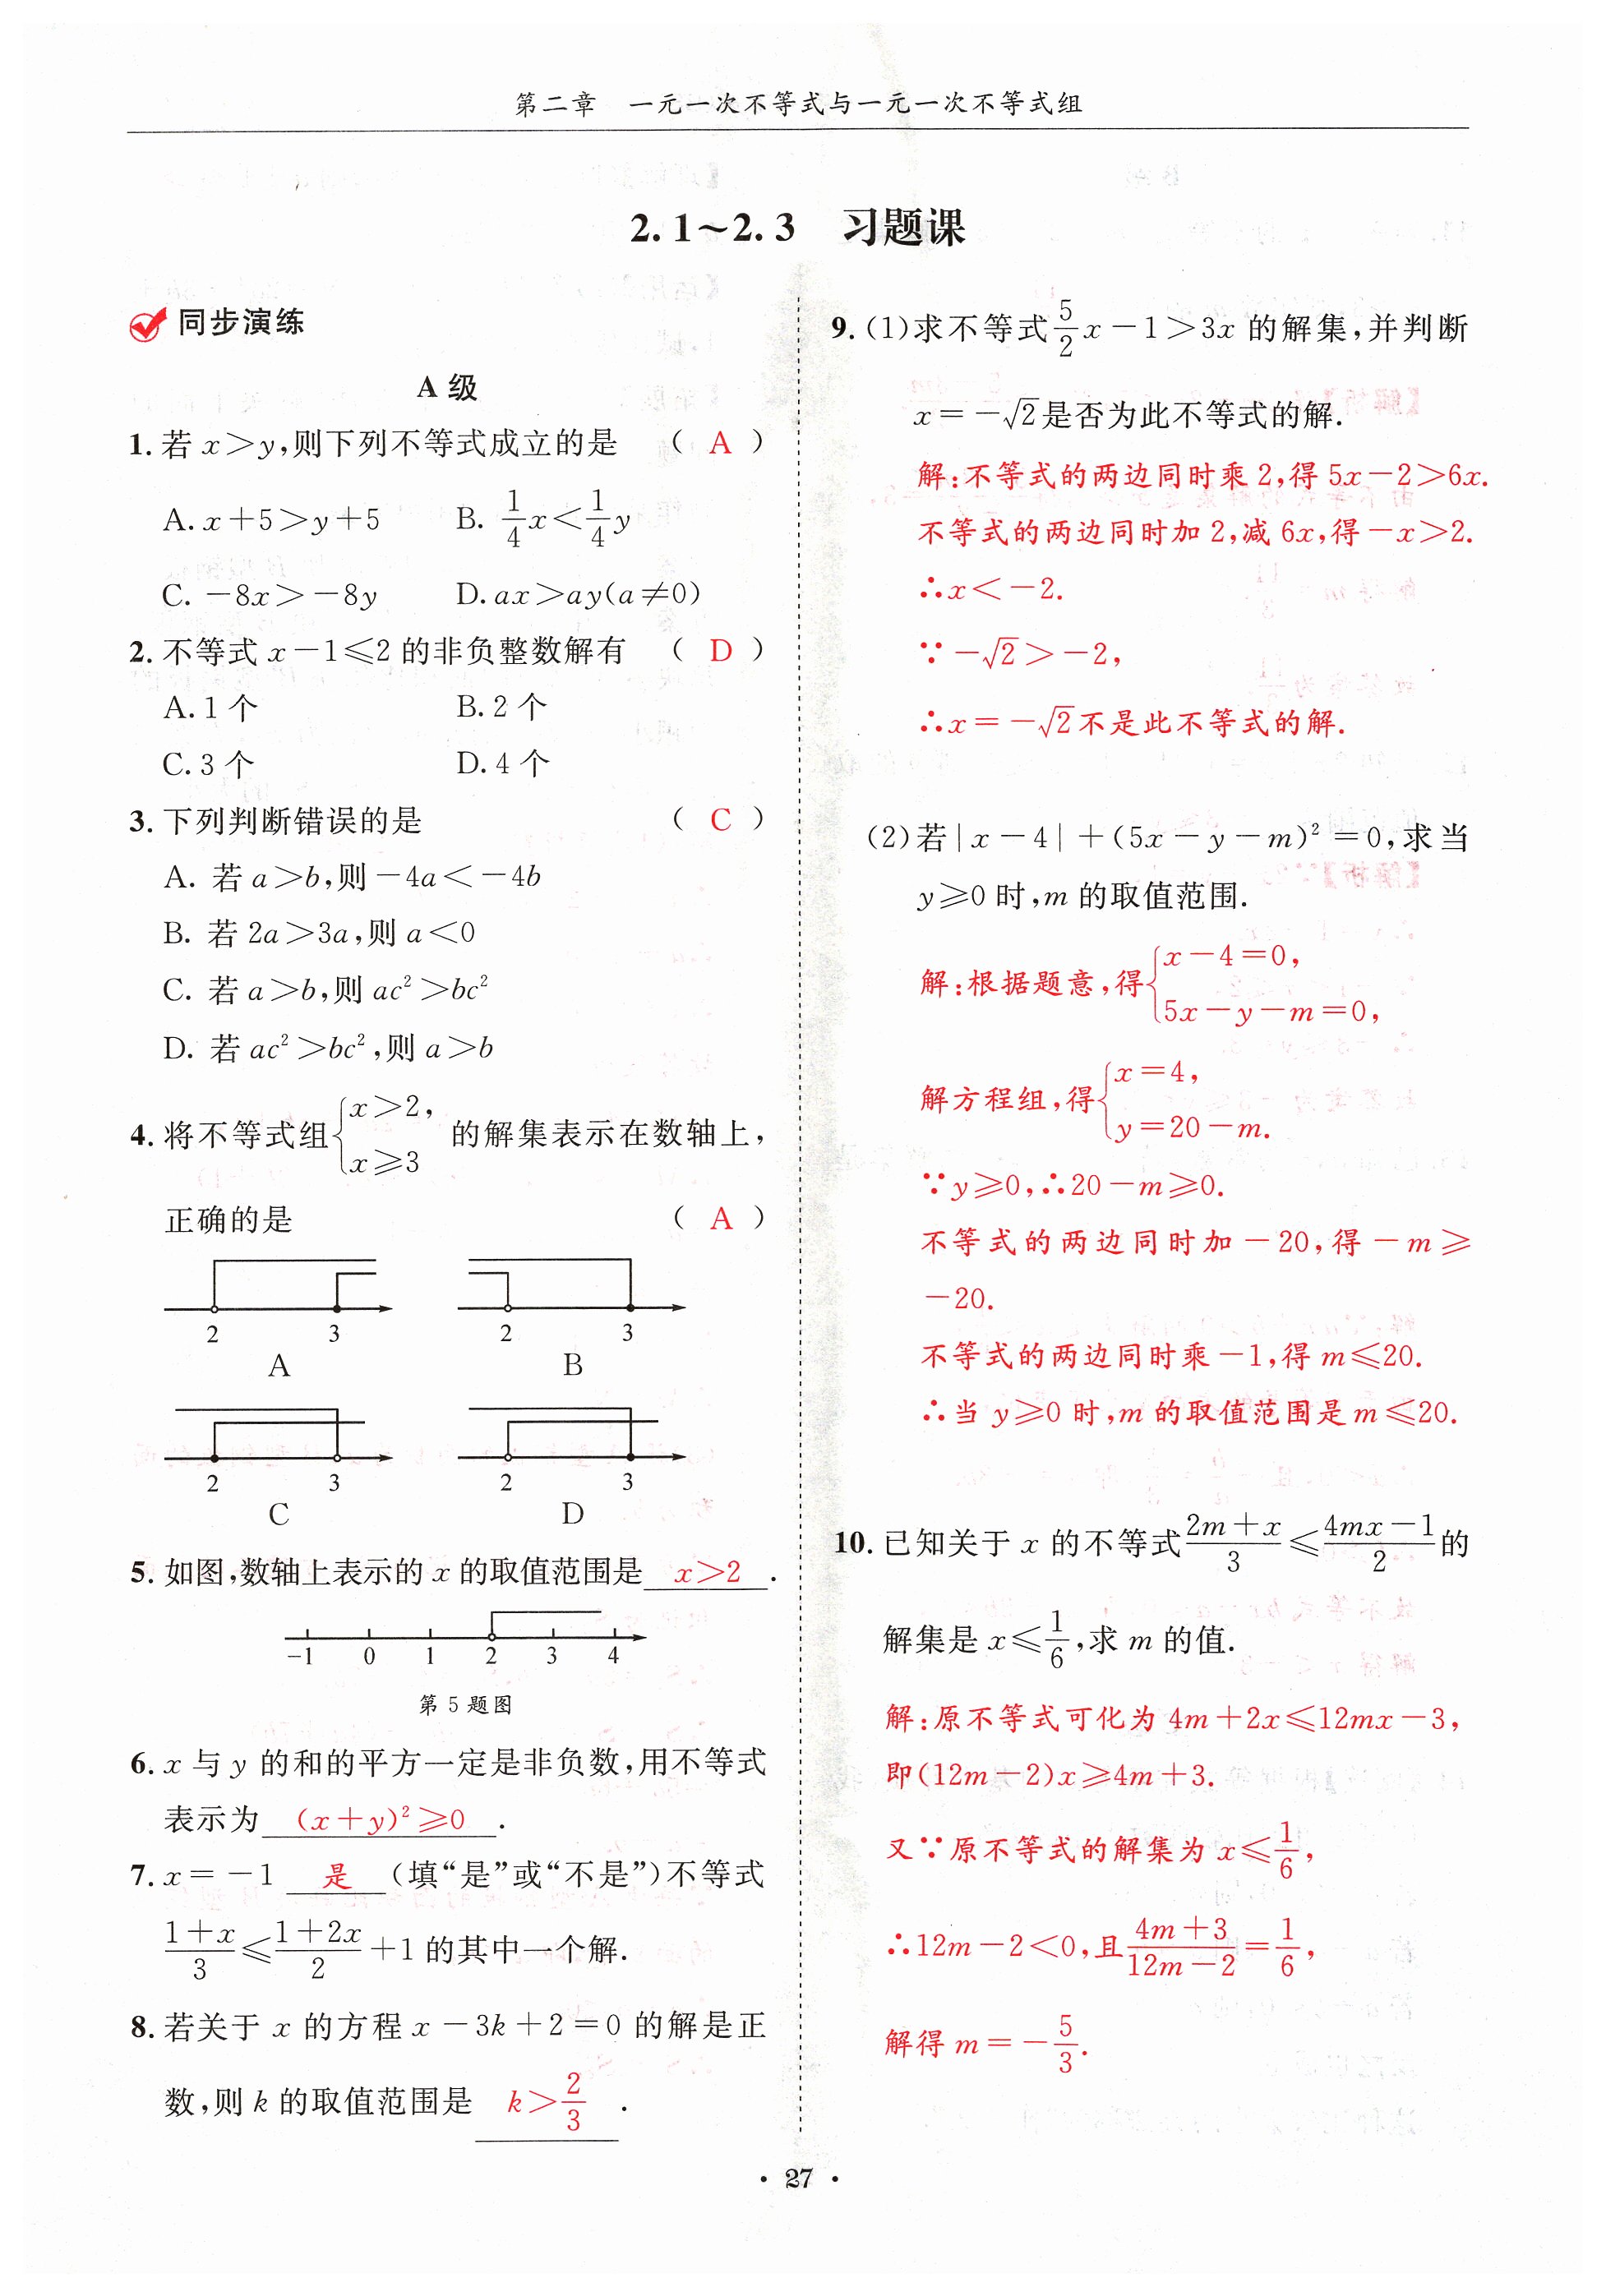 第二章 一元一次不等式与一元一次不等式组
2.1～2.3 习题课
同步演练
A 级
1. 若 x＞y,则下列不等式成立的是 ( A )
A. x＋5＞y＋5 B. 1/4 x＜1/4 y
C. －8x＞－8y D. ax＞ay(a≠0)
2. 不等式 x－1≤2 的非负整数解有 ( D )
A. 1 个 B. 2 个
C. 3 个 D. 4 个
3. 下列判断错误的是 ( C )
A. 若 a＞b,则－4a＜－4b
B. 若 2a＞3a,则 a＜0
C. 若 a＞b,则 ac²＞bc²
D. 若 ac²＞bc²,则 a＞b
4. 将不等式组{x＞2, x≥3 的解集表示在数轴上,
正确的是 ( A )
2 3 2 3
A B
2 3 2 3
C D
5. 如图,数轴上表示的 x 的取值范围是 x＞2 .
－1 0 1 2 3 4
第 5 题图
6. x 与 y 的和的平方一定是非负数,用不等式
表示为 (x＋y)²≥0 .
7. x＝－1 是 (填“是”或“不是”)不等式
(1＋x)/3≤(1＋2x)/2＋1 的其中一个解.
8. 若关于 x 的方程 x－3k＋2＝0 的解是正
数,则 k 的取值范围是 k＞2/3 .
9. (1)求不等式 5/2 x－1＞3x 的解集,并判断
x＝－√2是否为此不等式的解.
解:不等式的两边同时乘 2,得 5x－2＞6x.
不等式的两边同时加 2,减 6x,得－x＞2.
∴x＜－2.
∵－√2＞－2,
∴x＝－√2不是此不等式的解.
(2)若|x－4|＋(5x－y－m)²＝0,求当
y≥0 时,m 的取值范围.
解:根据题意,得{x－4＝0, 5x－y－m＝0,
解方程组,得{x＝4, y＝20－m.
∵y≥0,∴20－m≥0.
不等式的两边同时加－20,得－m≥
－20.
不等式的两边同时乘－1,得 m≤20.
∴当 y≥0 时,m 的取值范围是 m≤20.
10. 已知关于 x 的不等式(2m＋x)/3≤(4mx－1)/2的
解集是 x≤1/6,求 m 的值.
解:原不等式可化为 4m＋2x≤12mx－3,
即(12m－2)x≥4m＋3.
又∵原不等式的解集为 x≤1/6,
∴12m－2＜0,且(4m＋3)/(12m－2)＝1/6,
解得 m＝－5/3.
· 27 ·